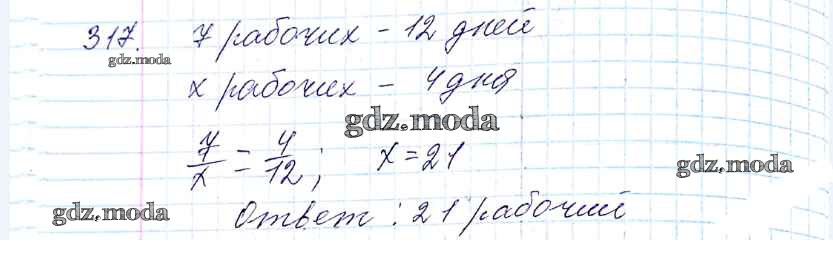 317. 7 рабочих - 12 дней
gdz.moda
х рабочих - 4 дня
gdz.moda
7/х = 4/12; х = 21
gdz.moda
gdz.moda
Ответ: 21 рабочий